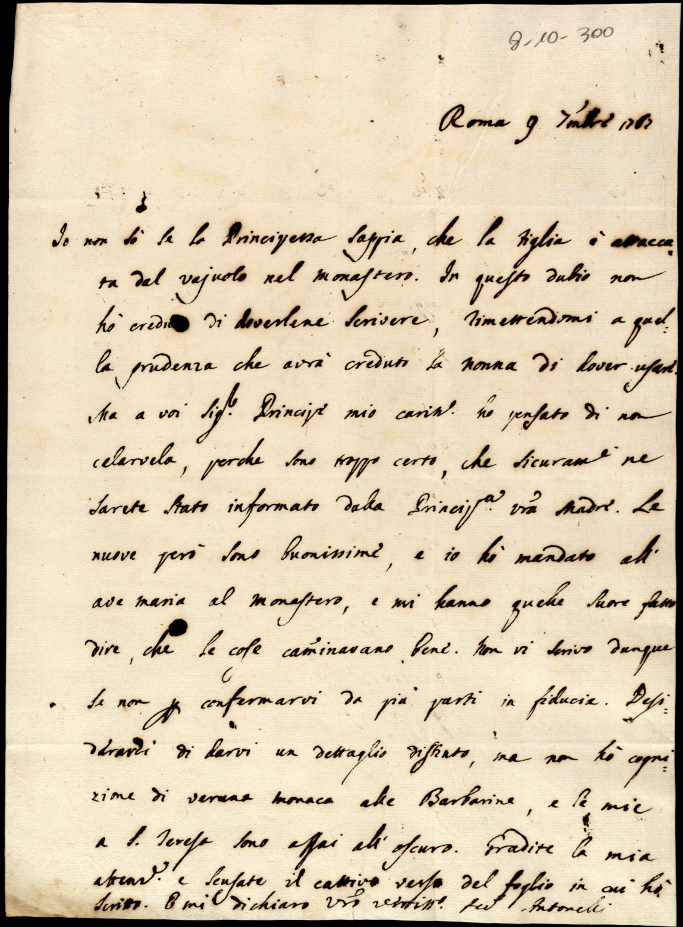 9-10-300
Roma 9 7mbre 1767
Io non sò se la Principessa sappia, che la figlia è attacca-
ta dal vajuolo nel monastero. In questo dubio non
hò credu di doverlene scrivere, rimettendomi a quel-
la prudenza che avrà creduto la nonna di dover usare.
Ma a voi Sigr. Principe mio carim. ho pensato di non
celarvela, perche sono troppo certo, che sicurame ne
sarete stato informato dalla Princip.a vra Madre. Le
nuove però sono buonissime, e io hò mandato all'
ave maria al monastero, e mi hanno quelle suore fatto
dire, che le cose caminavano bene. Non vi scrivo dunque
se non p confermarvi da più parti in fiducia. Desi-
derarei di darvi un dettaglio distinto, ma non hò cogni-
zione di veruna monaca alle Barbarine, e le mie
a S. Teresa sono assai all'oscuro. Gradite la mia
attenz.e e scusate il cattivo verso del foglio in cui hò
scritto. E mi dichiaro Vro Antonelli